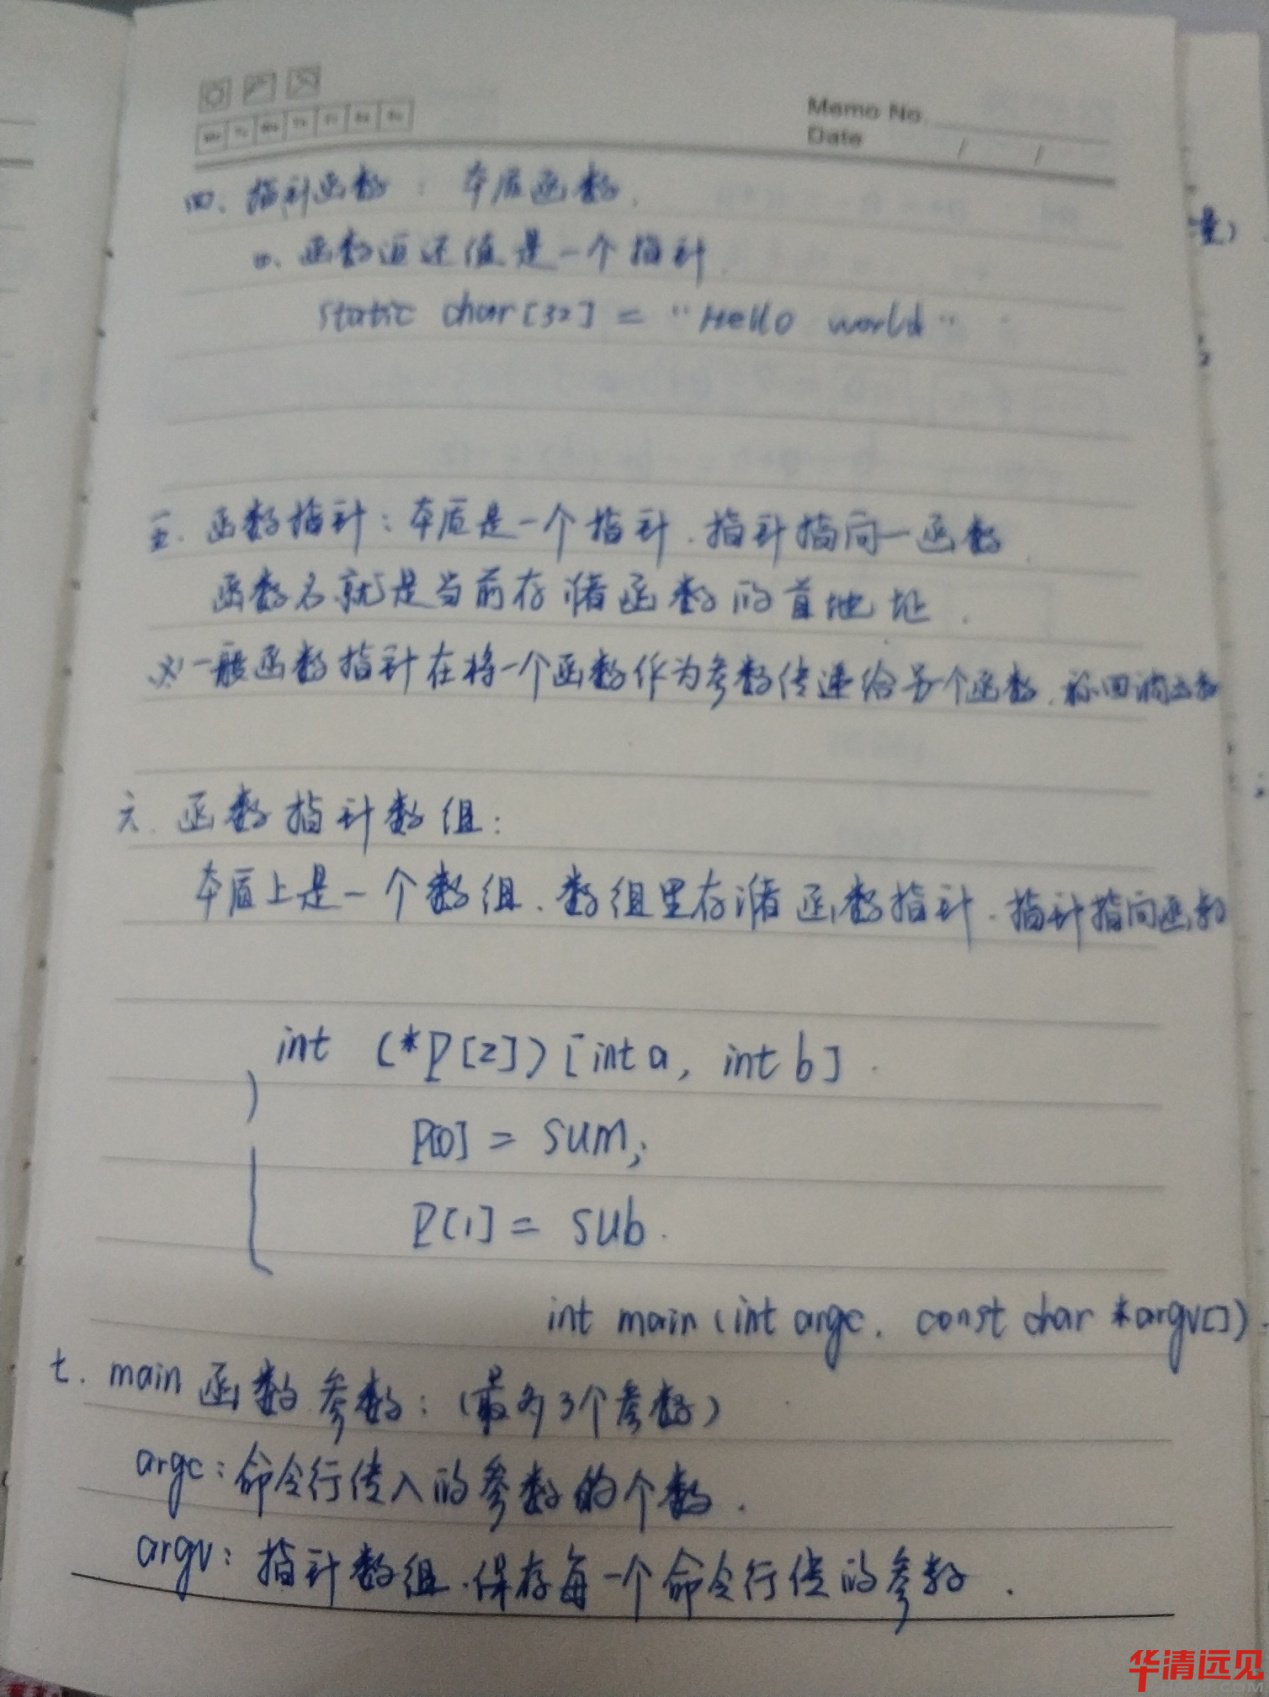 Memo No
Date / /
四、指针函数：本质函数.
函数返还值是一个指针
static char[32] = "Hello world"
五.函数指针：本质是一个指针.指针指向一函数
函数名就是当前存储函数的首地址.
一般函数指针在将一个函数作为参数传递给另个函数.称回调函数
六.函数指针数组:
本质上是一个数组.数组里存储函数指针.指针指向函数
int (*P[2])[int a, int b].
P[0] = sum;
P[1] = sub.
int main (int argc. const char *argv[]).
七. main 函数参数:(最多3个参数)
argc:命令行传入的参数的个数.
argv:指针数组.保存每一个命令行传的参数.
华清远见